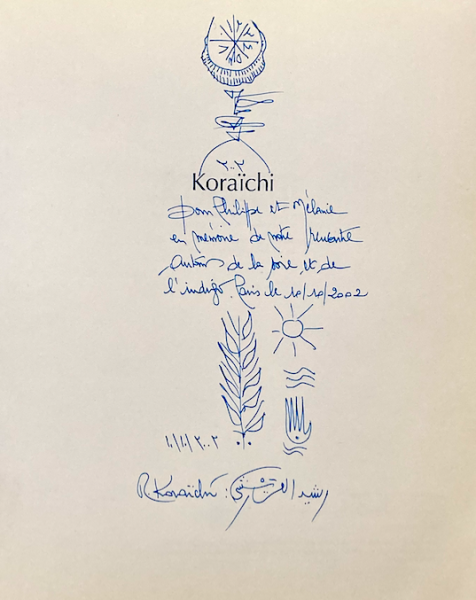 ٢٠٠٢
Koraïchi
pour Philippe et Mélanie
en mémoire de notre rencontre
autour de la soie et de
l'indigo. Paris le 10/10/2002
١٠/١٠/٢٠٠٢
R. Koraïchi : رشيد القريشي